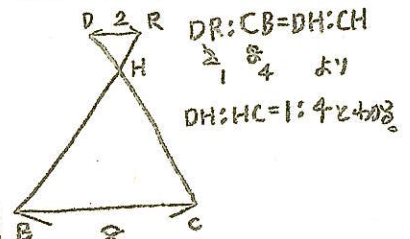 D 2 R
H
B 8 C
DR:CB=DH:CH
2 8
1 4 より
DH:HC=1:4とわかる。